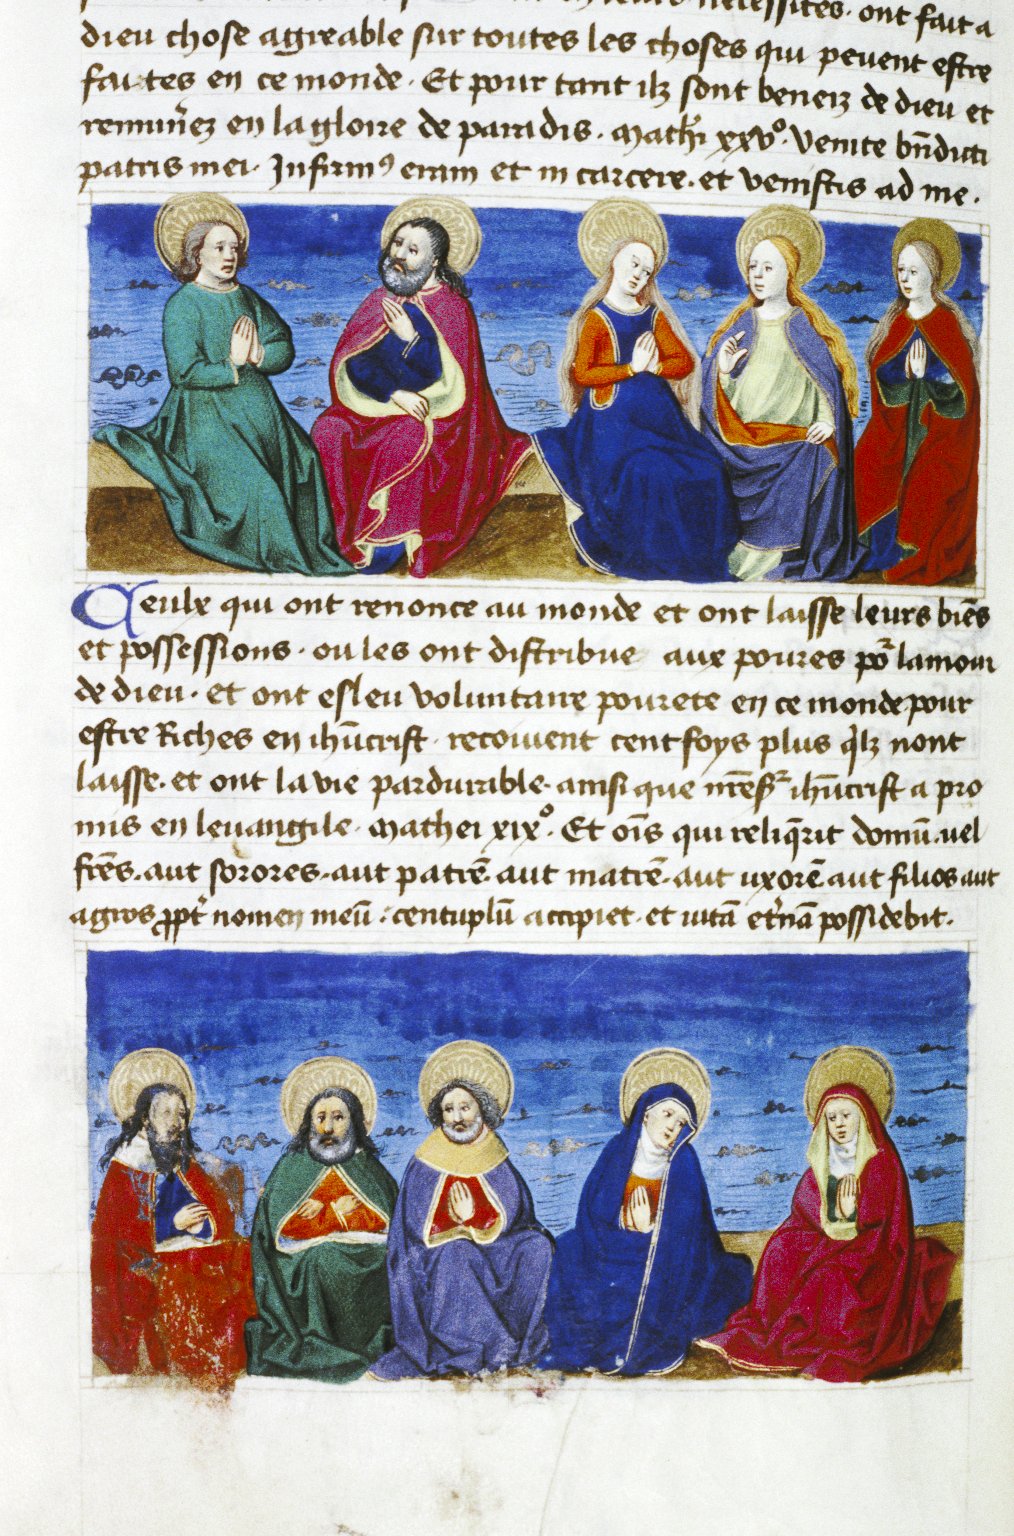 necessites. ont fait a
dieu chose agreable sur toutes les choses qui peuent estre
faittes en ce monde. Et pour tant ilz sont beneiz de dieu et
remun̄ez en la gloire de paradis. Mathi xxvº. Venite bn̄dicti
patris mei. Infirmꝰ eram et in carcere. et venistis ad me.
Ceulx qui ont renonce au monde et ont laisse leurs biēs
et possessions. ou les ont distribue aux poures po᷑ lamour
de dieu. et ont esleu voluntaire pourete en ce monde pour
estre Riches en ihūcrist. recoiuent cent foys plus q̄lz nont
laisse. et ont la vie pardurable. ainsi que nr̄e sr̄ ihūcrist a pro
mis en leuangile. Mathei xixº. Et oīs qui reliq̄rit domū. uel
fr̄es. aut sorores. aut patrē. aut matrē. aut uxorē aut filios aut
agros ꝓpt᷑ nomen meū: centuplū accipiet. et uitā et᷑nā possidebit.